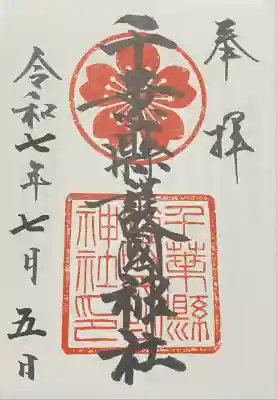 奉拝
千葉縣護國神社
千葉縣
護國
神社印
令和七年七月五日